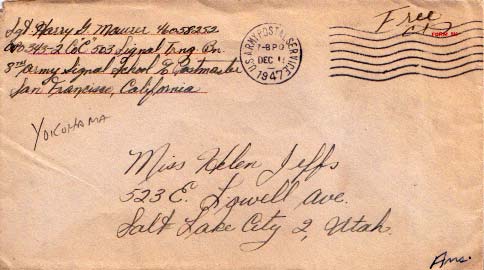 Sgt Harry G. Maurer 46058252
APO 343-2 Co "C" 503 Signal Trng. Bn.
8TH Army Signal School % Postmaster
San Francisco, California
YOKOHAMA
U.S. ARMY POSTAL SERVICE
DEC
1947
Free
Miss Helen Jeffs
523 E. Lowell Ave.
Salt Lake City 2, Utah.
Ans.